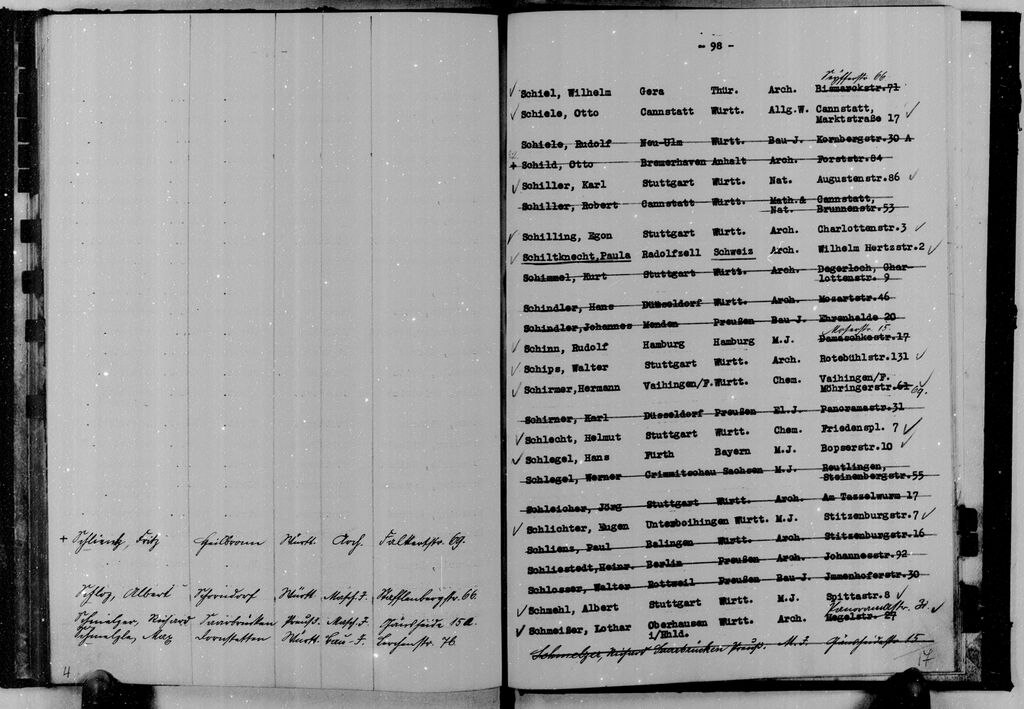 + Schlientz, Fritz Heilbronn Württ. Arch. Falkertstr. 69.
Schloz, Albert Schorndorf Württ. Masch.J. Stafflenbergstr. 66.
Schmelzer, Richard Saarbrücken Preuß. Masch.J. Gänsheide 15a.
Schmelzle, Max Dornstetten Württ. Bau-J. Lerchenstr. 76.
4
- 98 -
66
Schiel, Wilhelm Gera Thür. Arch. Bismarckstr.71
Schiele, Otto Cannstatt Württ. Allg.W. Cannstatt,
Marktstraße 17
Schiele, Rudolf Neu-Ulm Württ. Bau-J. Kornbergstr.30 A
+ Schild, Otto Bremerhaven Anhalt Arch. Forststr.84
Schiller, Karl Stuttgart Württ. Nat. Augustenstr.86
Schiller, Robert Cannstatt Württ. Math.& Cannstatt,
Nat. Brunnenstr.53
Schilling, Egon Stuttgart Württ. Arch. Charlottenstr.3
Schiltknecht,Paula Radolfzell Schweiz Arch. Wilhelm Hertzstr.2
Schimmel, Kurt Stuttgart Württ. Arch. Degerloch, Char-
lottenstr. 9
Schindler, Hans Düsseldorf Württ. Arch. Mozartstr.46
Schindler,Johannes Menden Preußen Bau-J. Ehrenhalde 20
Moserstr. 15.
Schinn, Rudolf Hamburg Hamburg M.J. Damaschkestr.17
Schips, Walter Stuttgart Württ. Arch. Rotebühlstr.131
Schirmer,Hermann Vaihingen/F. Württ. Chem. Vaihingen/F.
Möhringerstr.61 69.
Schirner, Karl Düsseldorf Preußen El.J. Panoramastr.31
Schlecht, Helmut Stuttgart Württ. Chem. Friedenspl. 7
Schlegel, Hans Fürth Bayern M.J. Bopserstr.10
Schlegel, Werner Crimmitschau Sachsen M.J. Reutlingen,
Steinenbergstr.55
Schleicher, Jörg Stuttgart Württ. Arch. Am Tazzelwurm 17
Schlichter, Eugen Unterboihingen Württ. M.J. Stitzenburgstr.7
Schlienz, Paul Balingen Württ. Arch. Stitzenburgstr.16
Schliestedt,Heinr. Berlin Preußen Arch. Johannesstr.92
Schlosser, Walter Rottweil Preußen Bau-J. Immenhoferstr.30
Schmehl, Albert Stuttgart Württ. M.J. Spittastr.8
Schmeißer, Lothar Oberhausen Württ. Arch. Hegelstr. 27
i/Rhld.
Schmelzer, Richard Saarbrücken Preuß. M.J. Gänsheidestr 15
17